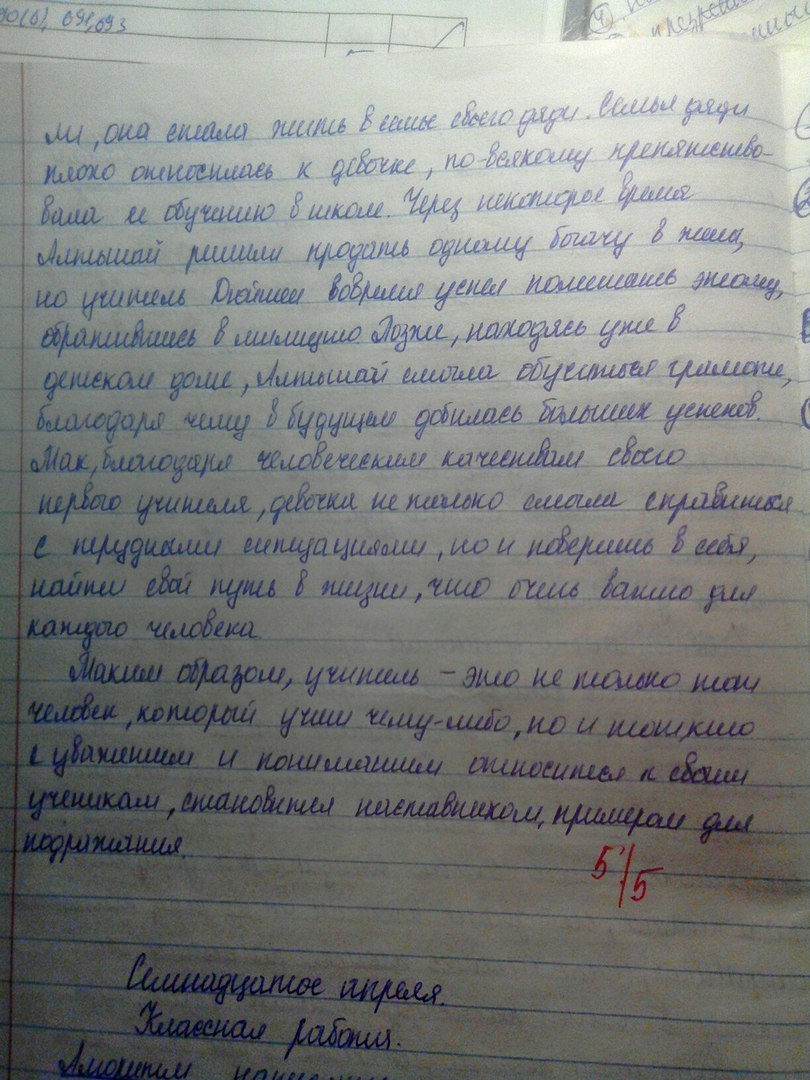 90(6), 691,693
ли, она стала жить в семье своего дяди. Семья дяди
плохо относилась к девочке, по-всякому препятство-
вала ее обучению в школе. Через некоторое время
Алтынай решили продать одному богачу в жены,
но учитель Дюйшен вовремя успел помешать этому,
обратившись в милицию. Позже, находясь уже в
детском доме, Алтынай смогла обучиться грамоте,
благодаря чему в будущем добилась больших успехов.
Так, благодаря человеческим качествам своего
первого учителя, девочка не только смогла справиться
с трудными ситуациями, но и поверить в себя,
найти свой путь в жизни, что очень важно для
каждого человека.
Таким образом, учитель – это не только тот
человек, который учит чему-либо, но и тот, кто
с уважением и пониманием относится к своим
ученикам, становится наставником, примером для
подражания.
5/5
Семнадцатое апреля.
Классная работа.